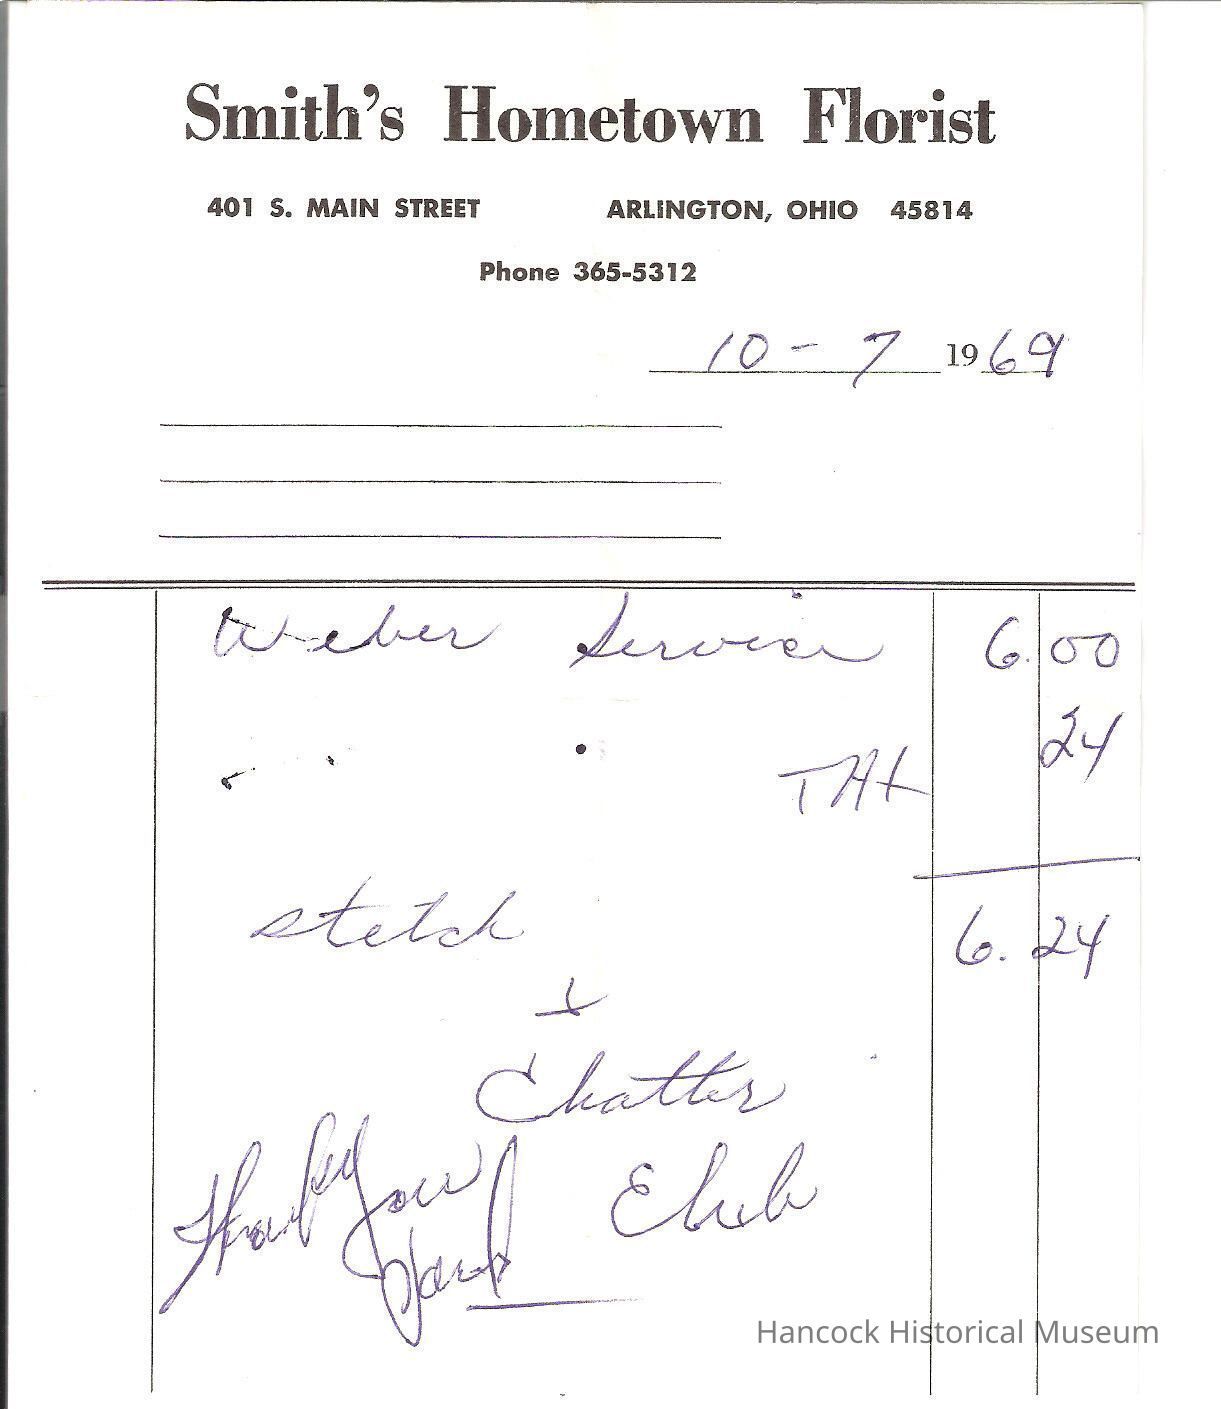 Smith's Hometown Florist
401 S. MAIN STREET ARLINGTON, OHIO 45814
Phone 365-5312
10 - 7 1969
Weber Service 6.00
TAX 24
6.24
Stetch
&
Chatter
Club
Thank You
Paid
Hancock Historical Museum